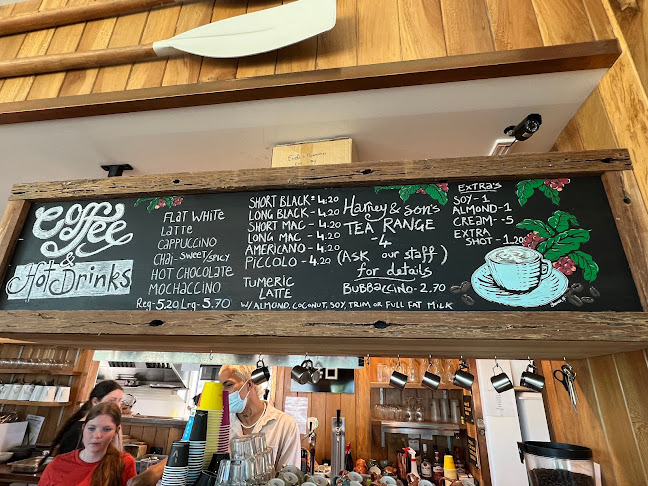 Coffee
& Hot Drinks
FLAT WHITE
LATTE
CAPPUCCINO
CHAI-SWEET/SPICY
HOT CHOCOLATE
MOCHACCINO
Reg-5.20 Lrg-5.70
SHORT BLACK-4.20
LONG BLACK-4.20
SHORT MAC-4.20
LONG MAC-4.20
AMERICANO-4.20
PICCOLO-4.20
TUMERIC
LATTE
W/ ALMOND, COCONUT, SOY, TRIM OR FULL FAT MILK
Harney & son's
TEA RANGE
-4
(Ask our staff)
for details
BUBBACCINO-2.70
EXTRA'S
SOY-1
ALMOND-1
CREAM-.5
EXTRA
SHOT-1.20